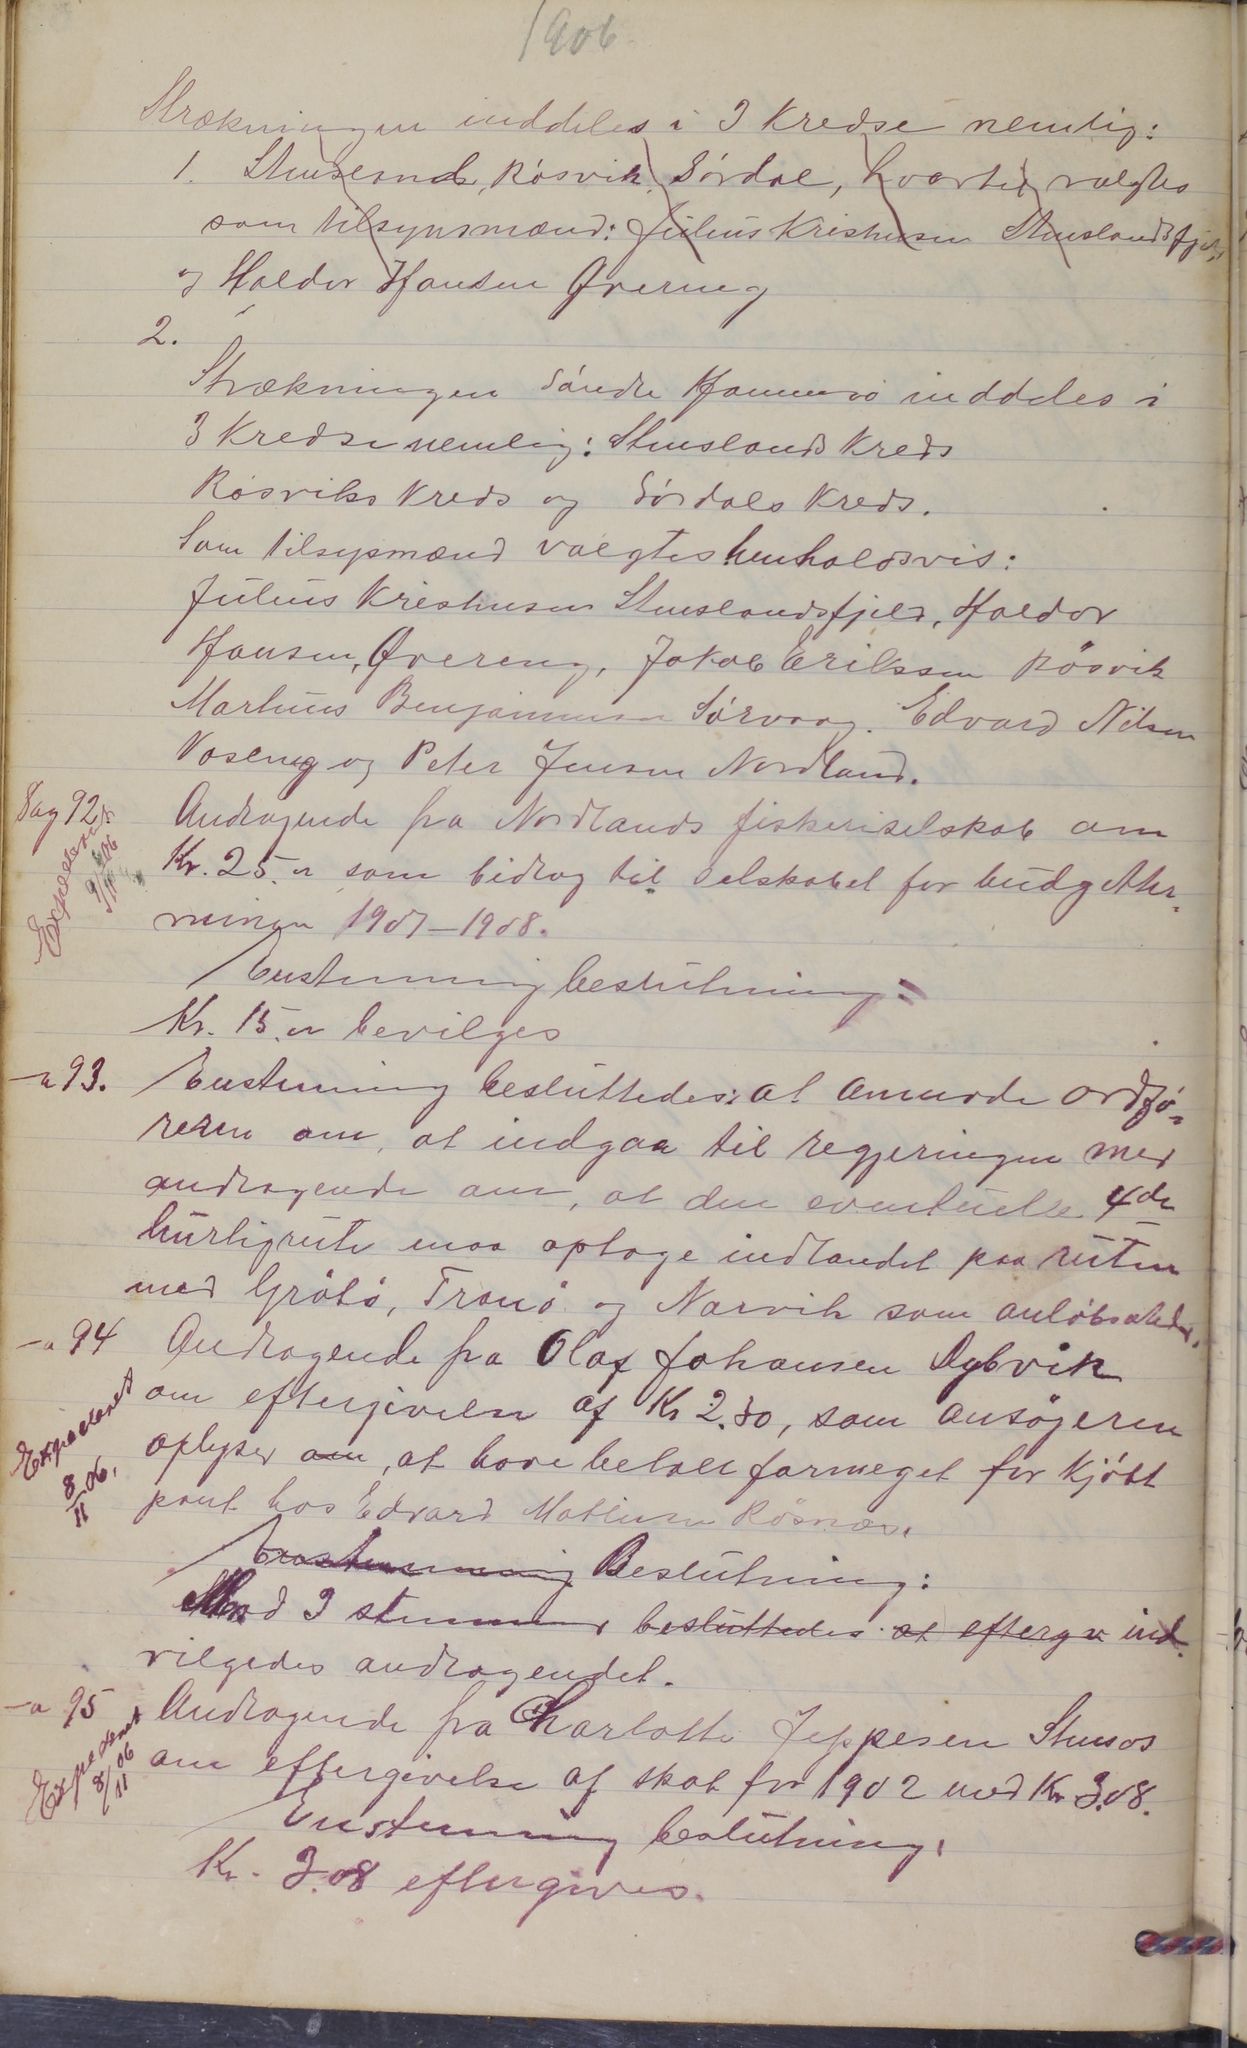 1906
Strækningen inddeles i 3 Kredse nemlig:
1. Stensland, Røsvik, Sørdal, hvortil valgtes
som tilsynsmænd: Julius Kristensen Stenslandsfjeld
og Haldor Hansen Øvereng
2.
Strækningen Søndre Hammerø inddeles i
3 Kredse nemlig: Stenslands Kreds
Røsviks Kreds og Sørdals Kreds.
Som tilsynsmænd valgtes henholdsvis:
Julius Kristensen Stenslandsfjeld, Haldor
Hansen, Øvereng, Jakob Eriksen Røsvik
Martinus Benjaminsen Sørvaag. Edvard Nilsen
Voseng og Peter Jensen Nordland.
Sag 92 Andragende fra Nordlands fiskeriselskab om
Expederet 9/11 06
Kr. 25.00 som bidrag til selskabet for budgetter-
mingen 1907–1908.
Enstemmig beslutning:
Kr. 15.00 bevilges
-"- 93. Enstemmig besluttedes: at anmode ordfø-
reren om, at indgaa til regjeringen med
andragende om, at den eventuelle 4de
hurtigrute maa optage indlandet paa ruten
med Grøtø, Tranø og Narvik som anløbssteder.
-"- 94 Andragende fra Olaf Johansen Dybvik
Expederet 8/11 06.
om eftergivelse af Kr 2.30, som ansøgeren
oplyser om, at have betalt formeget for Kjøtt
pant hos Edvard Mathisen Røsnæs.
Enstemmig Beslutning:
Med 3 stemmer besluttedes at efterg ind-
vilgedes andragendet.
-"- 95 Andragende fra Charlotte Jeppesen Stensos
Expederet 8/11 06
om eftergivelse af skat for 1902 med Kr 3.08.
Enstemmig beslutning:
Kr. 3.08 eftergives.